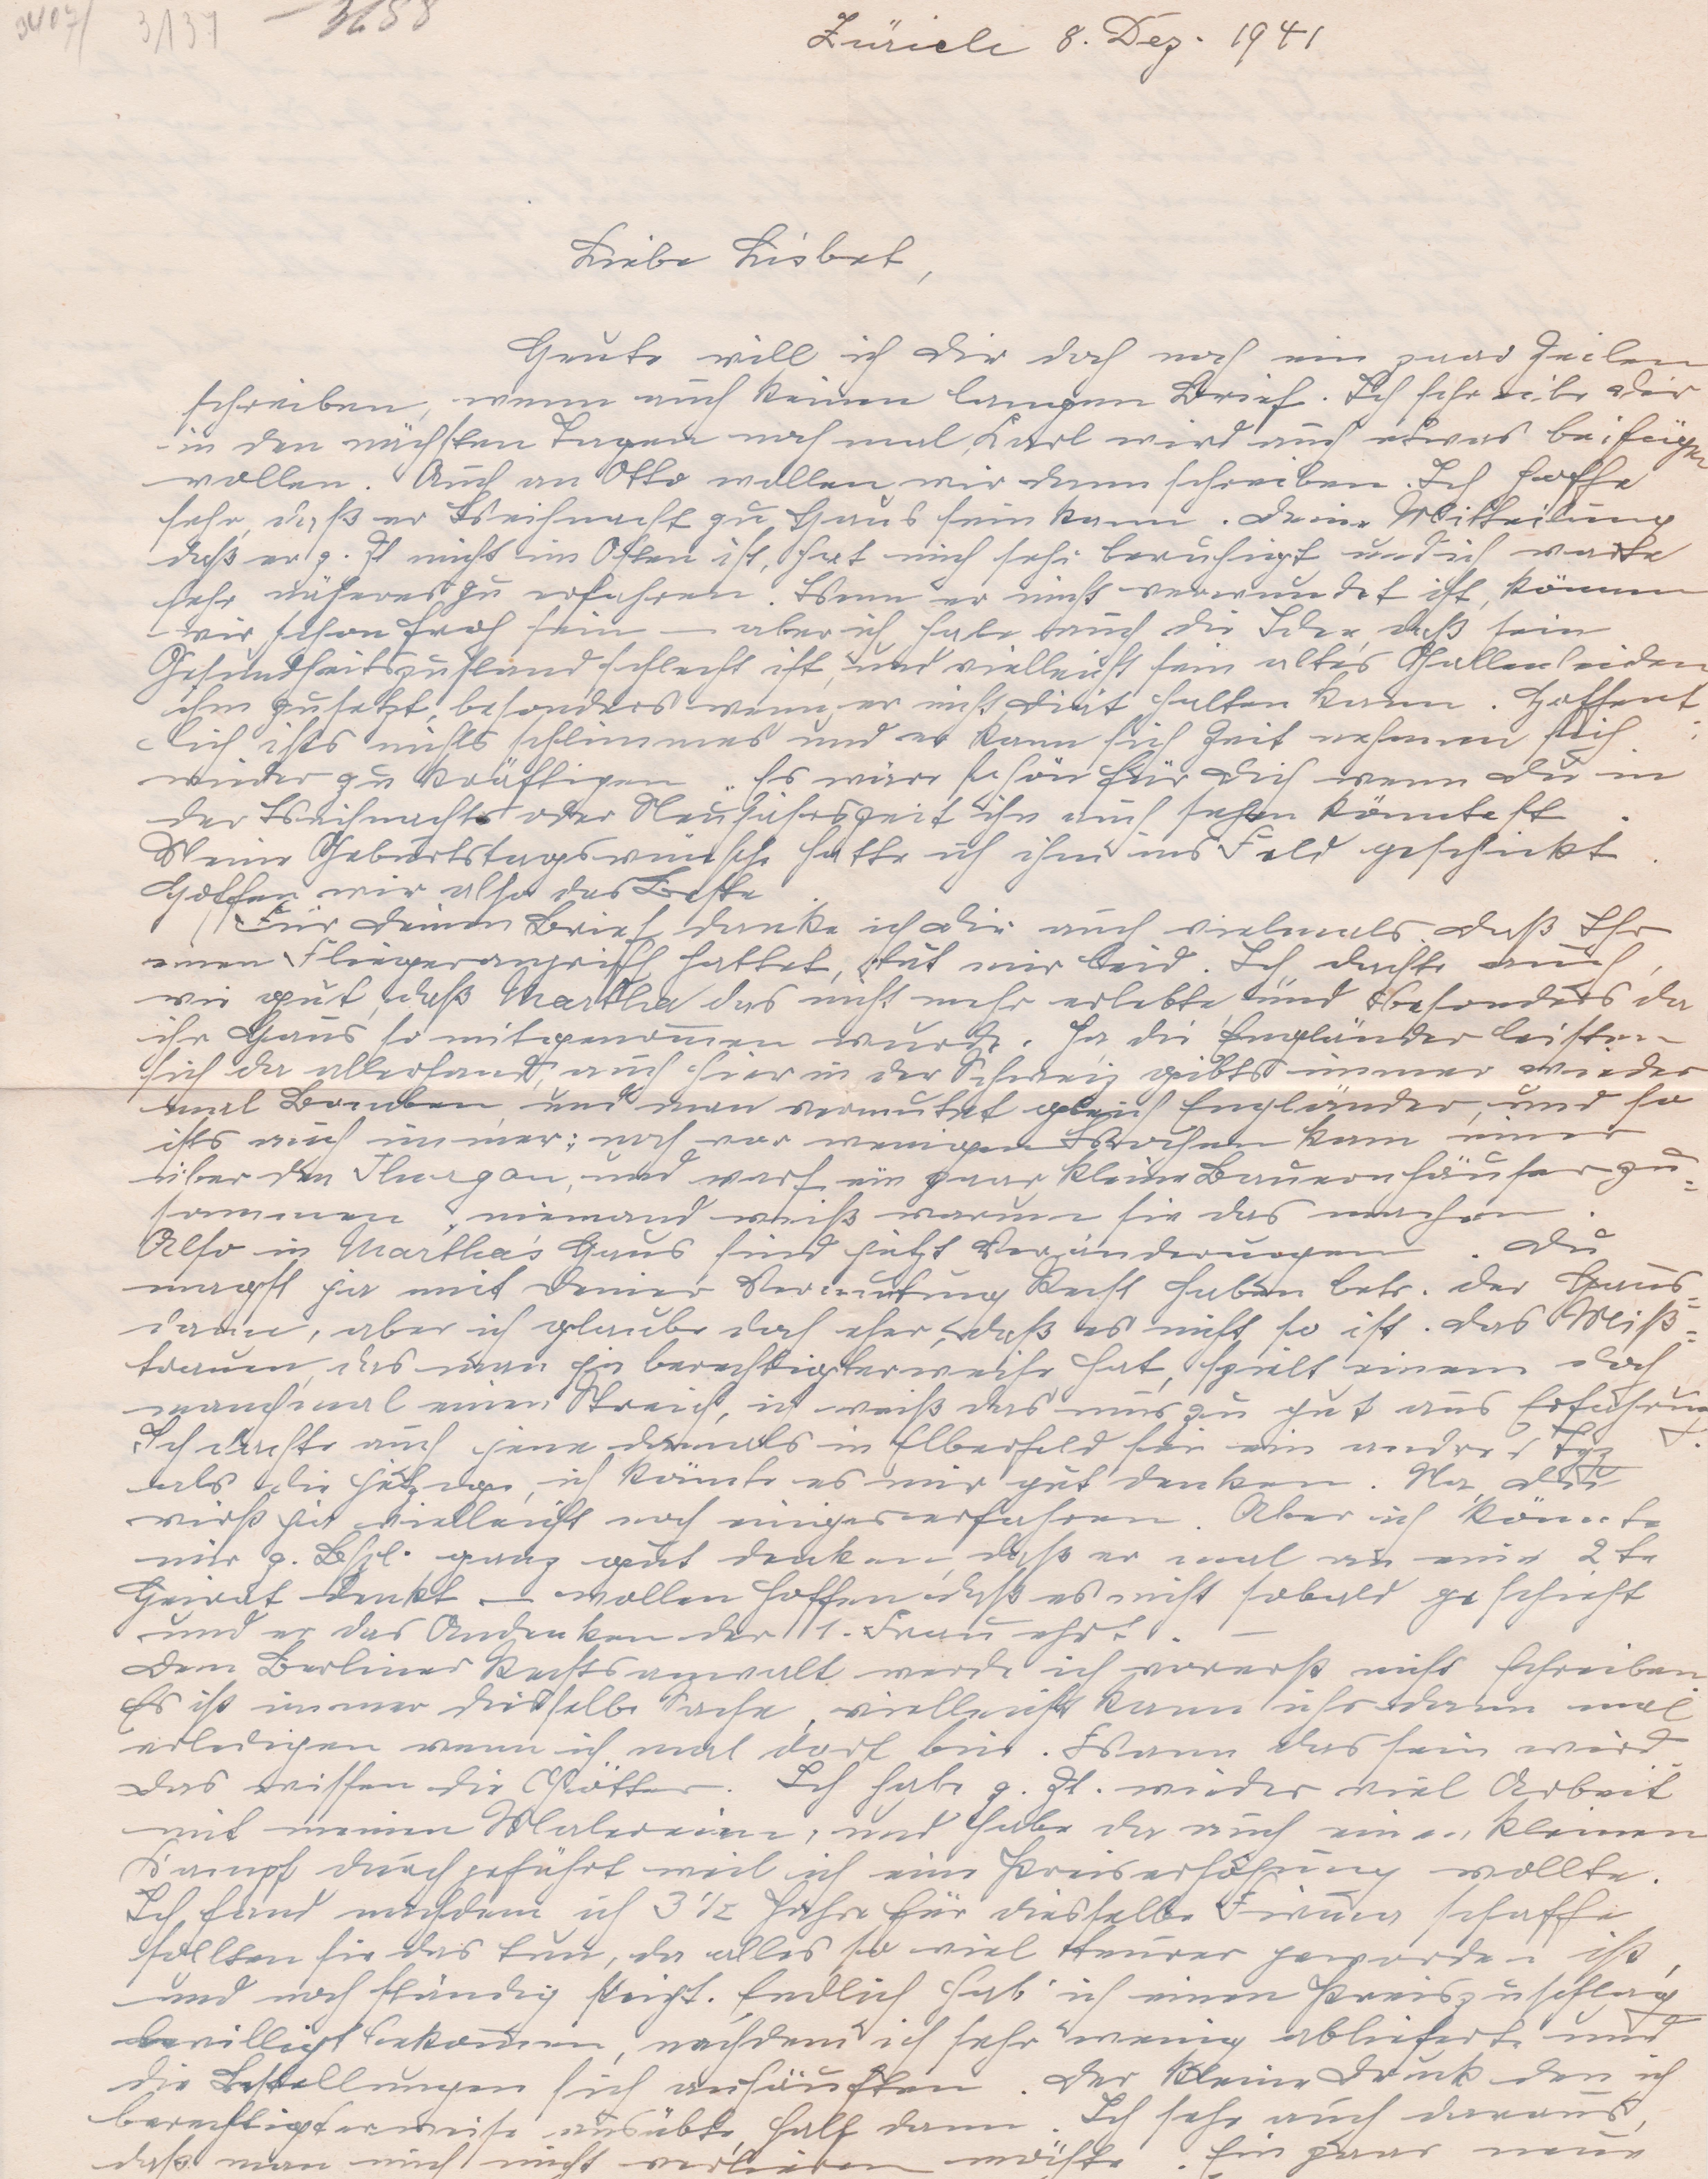 3/137 3688
Zürich 8. Dez. 1941
Liebe Lisbet,
Heute will ich Dir doch noch ein paar Zeilen
schreiben, wenn auch keinen langen Brief. Ich schreibe Dir
in den nächsten Tagen noch mal, Karl wird auch etwas beifügen
wollen. Auch an Otto wollen wir dann schreiben. Ich hoffe
sehr, daß er Weihnacht zu Haus sein kann. Deine Mitteilung
daß er z. Zt nicht im Osten ist, hat mich sehr beruhigt und ich warte
sehr näheres zu erfahren. Wenn er nicht verwundet ist, können
wir schon froh sein – aber ich habe auch die Idee, daß sein
Gesundheitszustand schlecht ist, und vielleicht sein altes Gallenleiden
ihm zusetzt, besonders wenn er nicht Diät halten kann. Hoffent
lich ists nichts schlimmes und er kann sich Zeit nehmen sich
wieder zu kräftigen. Es wäre schön für Dich wenn Du in
der Weihnachts oder Neujahrszeit ihn auch sehen könntest.
Meine Geburtstagswünsche hatte ich ihm ins Feld geschickt.
Hoffen wir also das Beste.
Für Deinen Brief danke ich Dir auch vielmals. Daß Ihr
einen Fliegerangriff hattet, tut mir leid. Ich dachte auch,
wie gut, daß Martha das nicht mehr erlebte, und besonders da
ihr Haus so mitgenommen wurde. Ja die Engländer leisten
sich da allerhand, auch hier in der Schweiz gibts immer wieder
mal Bomben und man vermutet gleich Engländer, und so
ists auch immer; noch vor wenigen Wochen kam einer
über den Thurgau, und warf ein paar kleine Bauernhäuser zu=
sammen, niemand weiß warum sie das machen.
Also in Martha's Haus sind jetzt Veränderungen. Du
magst ja mit Deiner Vermutung Recht haben betr. der Haus=
dame, aber ich glaube doch eher, daß es nicht so ist. Das Miß=
trauen, das man ja berechtigterweise hat, spielt einem doch
manchmal einen Streich, ich weiß das nur zu gut aus Erfahrung.
Ich dachte auch jene damals in Elberfeld sei ein andrer Typ
als die jetzige, ich könnte es mir gut denken. Na, Du
wirst ja vielleicht noch einiges erfahren. Aber ich könnte
mir z. Bspl. ganz gut denken, daß er mal an eine 2te
Heirat denkt – wollen hoffen daß es nicht sobald geschieht
und er das Andenken der 1. Frau ehrt. –
Dem Berliner Rechtsanwalt werde ich vorerst nicht schreiben.
Es ist immer dieselbe Sache, vielleicht kann ichs dann mal
erledigen wenn ich mal dort bin. Wann das sein wird
das wissen die Götter. Ich habe z. Zt. wieder viel Arbeit
mit meinen Malereien, und habe da auch einen kleinen
Kampf durchgeführt weil ich eine Preiserhöhung wollte.
Ich fand nachdem ich 3 1/2 Jahre für diesselbe Firma schaffe
sollten sie das tun, da alles so viel teurer geworden ist,
und noch ständig steigt. Endlich hab' ich einen Preiszuschlag
bewilligt bekommen, nachdem ich sehr wenig ablieferte und
die Bestellungen sich anhäuften. Der kleine Druck den ich
berechtigterweise ausübte, half dann. Ich sehe auch daraus,
daß man mich nicht verlieren möchte. Ein paar neue